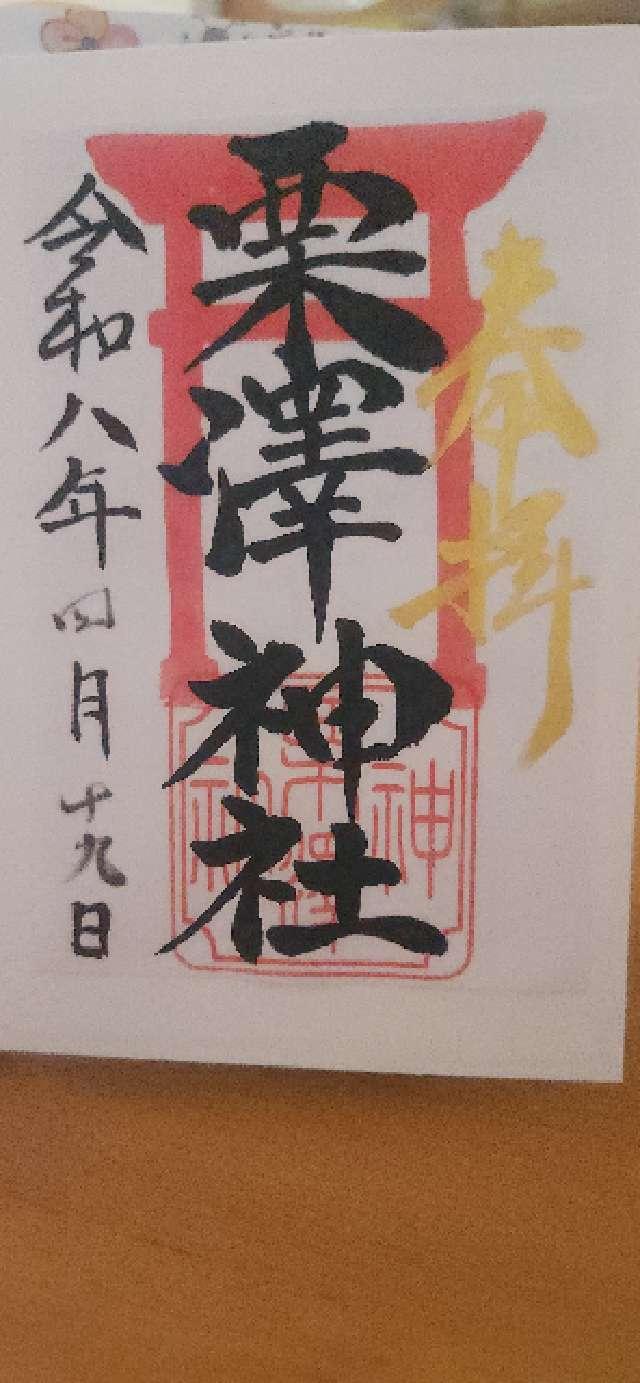 奉拝
栗澤神社
令和八年四月十九日
栗澤神社